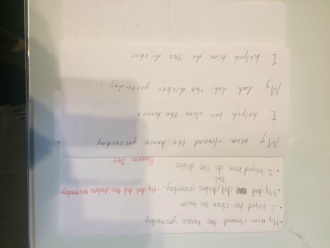 • My mom cleaned the house yesterday.
• I helped her clean the house
• My dad did dishes yesterday. My dad did the dishes yesterday
the
• I helped him do the dishes.
My mom cleaned the house yesterday
I helped her clean the house
My dad did the dishes yesterday.
I helped him do the dishes.